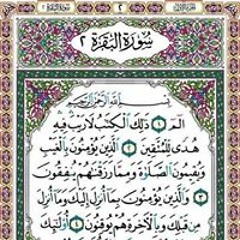 سُورَةُ البَقَرَةِ ٢
بِسْمِ اللَّهِ الرَّحْمَٰنِ الرَّحِيمِ
الٓمٓ ١ ذَٰلِكَ الْكِتَٰبُ لَا رَيْبَ فِيهِ
هُدًى لِّلْمُتَّقِينَ ٢ الَّذِينَ يُؤْمِنُونَ بِالْغَيْبِ
وَيُقِيمُونَ الصَّلَوٰةَ وَمِمَّا رَزَقْنَٰهُمْ يُنفِقُونَ
٣ وَالَّذِينَ يُؤْمِنُونَ بِمَآ أُنزِلَ إِلَيْكَ وَمَآ أُنزِلَ
مِن قَبْلِكَ وَبِالْءَاخِرَةِ هُمْ يُوقِنُونَ ٤ أُو۟لَٰٓئِكَ